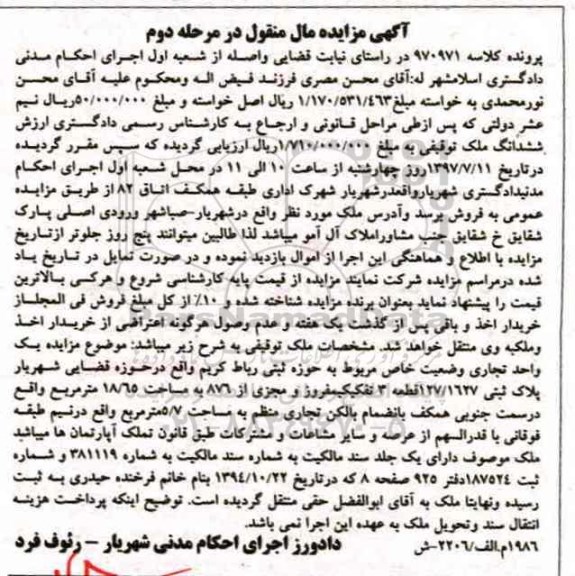 آگهی مزایده مال منقول در مرحله دوم
پرونده کلاسه ۹۷۰۹۷۱ در راستای نیابت قضایی واصله از شعبه اول اجرای احکام مدنی
دادگستری اسلامشهر له:آقای محسن مصری فرزند فیض اله ومحکوم علیه آقای محسن
نورمحمدی به خواسته مبلغ۱/۱۷۰/۵۳۱/۴۶۳ ریال اصل خواسته و مبلغ ۵۰/۰۰۰/۰۰۰ریال نیم
عشر دولتی که پس ازطی مراحل قانونی و ارجاع به کارشناس رسمی دادگستری ارزش
ششدانگ ملک توقیفی به مبلغ ۱/۷۱۰/۰۰۰/۰۰۰ریال ارزیابی گردیده که سپس مقرر گردیده
درتاریخ ۱۳۹۷/۷/۱۱روز چهارشنبه از ساعت ۱۰ الی ۱۱ در محل شعبه اول اجرای احکام
مدنیدادگستری شهریارواقعدرشهریار شهرک اداری طبقه همکف اتاق ۸۲ از طریق مزایده
عمومی به فروش برسد وآدرس ملک مورد نظر واقع درشهریار-صباشهر ورودی اصلی پارک
شقایق خ شقایق جنب مشاوراملاک آل آمو میباشد لذا طالبین میتوانند پنج روز جلوتر ازتاریخ
مزایده با اطلاع و هماهنگی این اجرا از اموال بازدید نموده و در صورت تمایل در تاریخ یاد
شده درمراسم مزایده شرکت نمایند مزایده از قیمت پایه کارشناسی شروع و هرکی بالاترین
قیمت را پیشنهاد نماید بعنوان برنده مزایده شناخته شده و ۱۰٪ از کل مبلغ فروش فی المجلاز
خریدار اخذ و باقی پس از گذشت یک هفته و عدم وصول هرگونه اعتراضی از خریدار اخذ
وملکیه وی منتقل خواهد شد. مشخصات ملک توقیفی به شرح زیر میباشد: موضوع مزایده یک
واحد تجاری وضعیت خاص مربوط به حوزه ثبتی رباط کریم واقع درحوزه قضایی شهریار
پلاک ثبتی ۱۲۷/۱۶۲۷قطعه ۳ تفکیکیمفروز و مجزی از ۸۷۶ به مساحت ۱۸/۶۵ مترمربع واقع
درسمت جنوبی همکف بانضمام بالکن تجاری منظم به مساحت ۵/۷مترمربع واقع درنیم طبقه
فوقانی با قدرالسهم از عرصه و سایر مشاعات و مشترکات طبق قانون تملک آپارتمان ها میباشد
ملک موصوف دارای یک جلد سند مالکیت به شماره سند مالکیت به شماره ۳۸۱۱۱۹ و شماره
ثبت ۱۸۷۵۲۴دفتر ۹۲۵ صفحه ۸ که درتاریخ ۱۳۹۴/۱۰/۲۲ بنام خانم فرخنده حیدری به ثبت
رسیده ونهایتا ملک به آقای ابوالفضل حقی منتقل گردیده است. توضیح اینکه پرداخت هزینه
انتقال سند وتحویل ملک به عهده این اجرا نمی باشد.
۱۹۸۶م.الف/۲۲۰۶-ش دادورز اجرای احکام مدنی شهریار – رئوف فرد
ParsNamadData